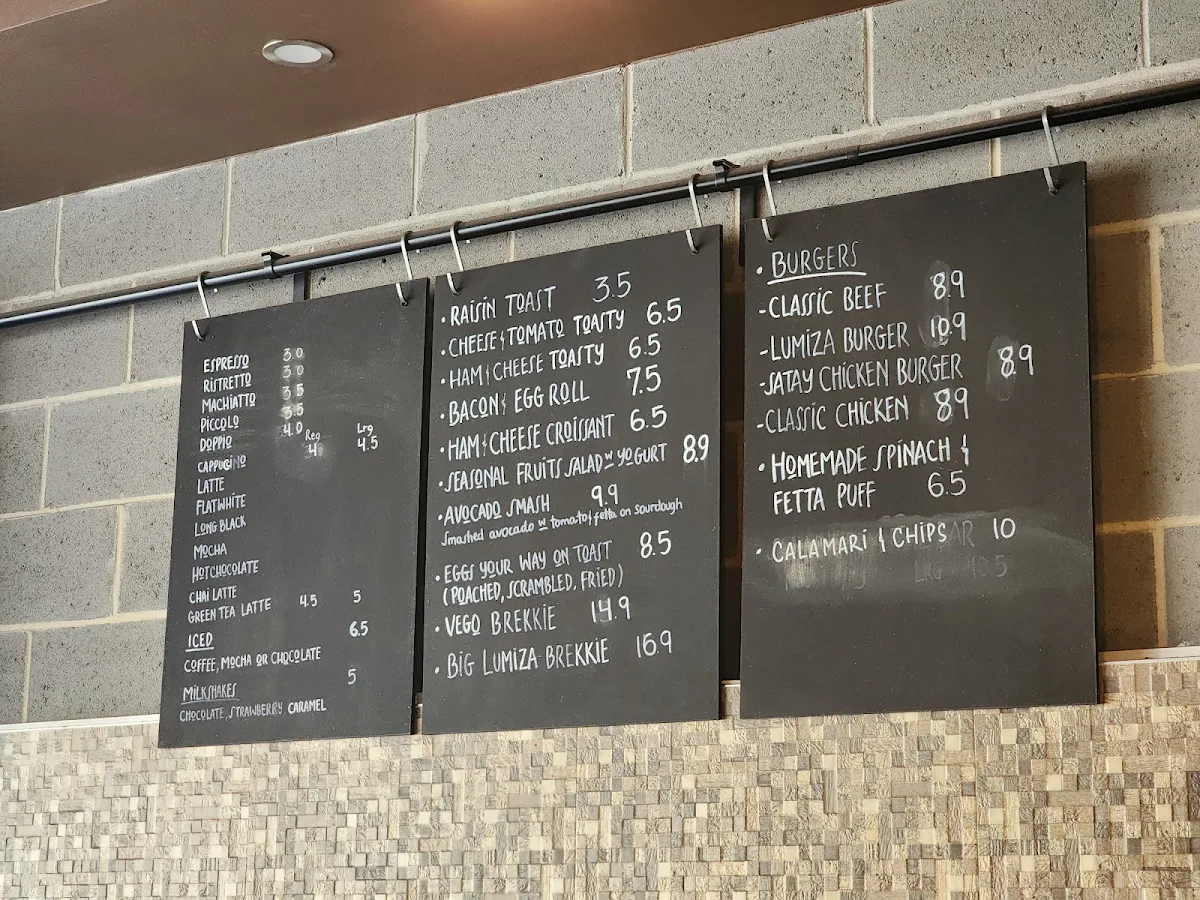 ESPRESSO 3.0
RISTRETTO 3.0
MACHIATTO 3.5
PICCOLO 3.5
DOPPIO 4.0 Reg Lrg
CAPPUCINO 4 4.5
LATTE
FLATWHITE
LONG BLACK
MOCHA
HOTCHOCOLATE
CHAI LATTE
GREEN TEA LATTE 4.5 5
ICED 6.5
COFFEE, MOCHA OR CHOCOLATE
MILKSHAKES 5
CHOCOLATE, STRAWBERRY, CARAMEL
• RAISIN TOAST 3.5
• CHEESE & TOMATO TOASTY 6.5
• HAM & CHEESE TOASTY 6.5
• BACON & EGG ROLL 7.5
• HAM & CHEESE CROISSANT 6.5
• SEASONAL FRUITS SALAD W YOGURT 8.9
• AVOCADO SMASH 9.9
Smashed avocado w tomato & fetta on sourdough
• EGGS YOUR WAY ON TOAST 8.5
(POACHED, SCRAMBLED, FRIED)
• VEGO BREKKIE 14.9
• BIG LUMIZA BREKKIE 16.9
• BURGERS
- CLASSIC BEEF 8.9
- LUMIZA BURGER 10.9
- SATAY CHICKEN BURGER 8.9
- CLASSIC CHICKEN 8.9
• HOMEMADE SPINACH &
FETTA PUFF 6.5
• CALAMARI & CHIPS 10